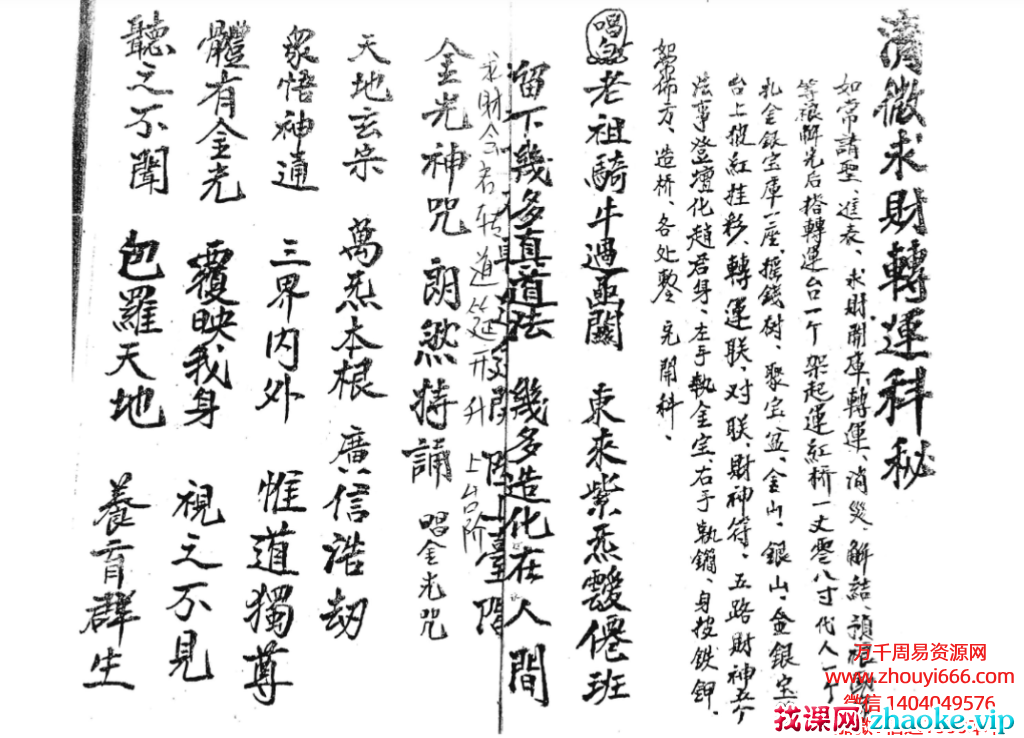 清微求財轉運科秘
如常請聖、進表、求財開庫、轉運、消災、解結、
等 完后搭轉運台一个架起運紅桥一丈零八寸代人一个
扎金銀宝庫一座、摇錢树、聚宝盆、金山、銀山、金銀宝
台上披紅挂彩、轉運联、对联、財神符、五路財神
法事登壇化趙君身、左手执金宝、右手执鐧、身披鉄鉀、
方、造桥、各处 完開科、
唱
老祖騎牛過 關 東來紫炁靉僊班
留下幾多真道法 幾多造化在人間
求財 者 道 升上台阶
金光神咒 朗然持誦 唱金光咒
天地玄宗 萬炁本根 廣信浩劫
眾悟神通 三界內外 惟道獨尊
體有金光 覆映我身 視之不見
聽之不聞 包羅天地 養育群生
万千周易资源网
www.zhouyi666.com
微信 1404049576
找课网zhaoke.vip